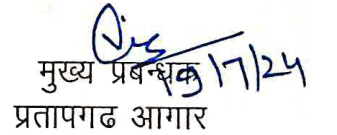 19/7/24
मुख्य प्रबन्धक
प्रतापगढ आगार